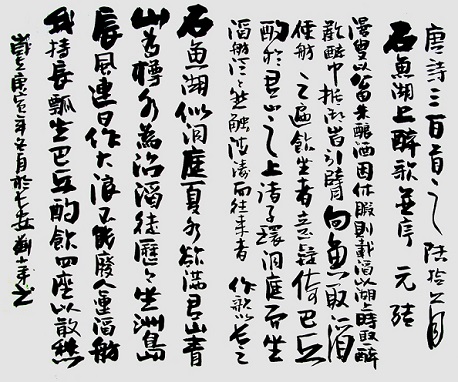 唐詩三百首之
石魚湖上醉歌並序 元結
漫叟以公田米釀酒因休暇則載酒以湖上時取一醉
歡醉中據湖岸引臂向魚取酒
使舫之遍飲坐者意疑倚巴丘
酌於君山之上諸子環洞庭而坐
酒舫泛泛然觸波濤而往來者 作歌以長之
石魚湖似洞庭夏水欲滿君山青
山為樽水為沼酒徒歷々坐洲島
長風連日作大浪不能廢人運酒舫
我持長瓢坐巴丘酌飲四座以散愁
月於長安